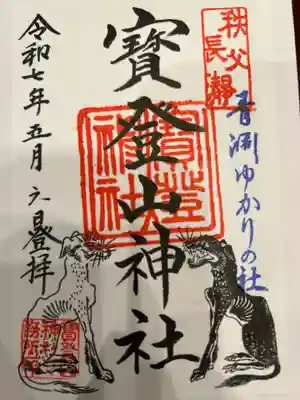 秩父
長瀞
青淵ゆかりの社
寳登山神社
寳登
山神
社
令和七年五月六日登拝
寳登山
神社
務所